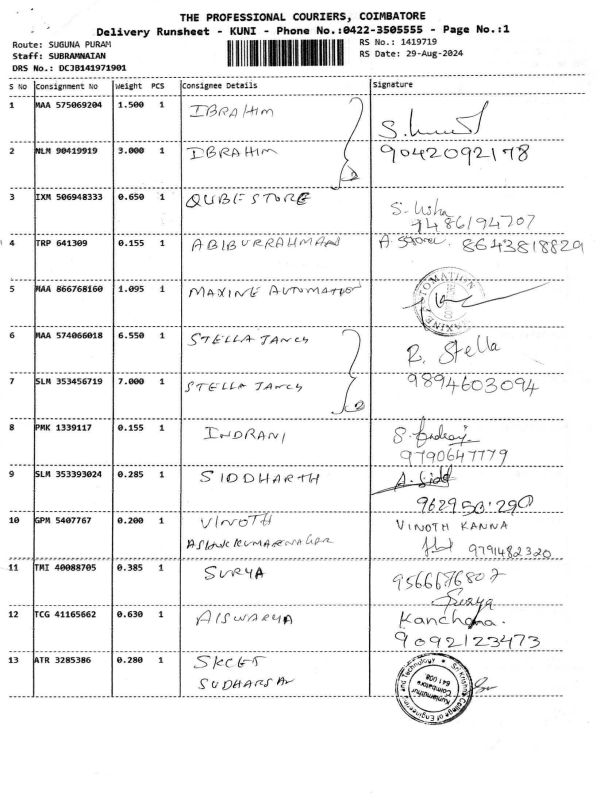 THE PROFESSIONAL COURIERS, COIMBATORE
Delivery Runsheet - KUNI - Phone No.:0422-3505555 - Page No.:1
Route: SUGUNA PURAM
RS No.: 1419719
Staff: SUBRAMNAIAN
RS Date: 29-Aug-2024
DRS No.: DCJB141971901
S No Consignment No Weight PCS Consignee Details Signature
1 MAA 575069204 1.500 1 IBRAHIM
2 NLM 90419919 3.000 1 IBRAHIM 9042092178
3 IXM 506948333 0.650 1 QUBESTORE S. Usha
9486194707
4 TRP 641309 0.155 1 ABIBURRAHMAN 8643818829
5 MAA 866768160 1.095 1 MAXINE AUTOMATION
6 MAA 574066018 6.550 1 STELLA JANCY R. Stella
7 SLM 353456719 7.000 1 STELLA JANCY 9894603094
2
2
8 PMK 1339117 0.155 1 INDRANI
9790647779
9 SLM 353393024 0.285 1 SIDDHARTH A. Sidd
10 GPM 5407767 0.200 1 VINOTH VINOTH KANNA
ASHOKKUMARNAGAR 9791482320
11 TMI 40088705 0.385 1 SURYA
Surya
12 TCG 41165662 0.630 1 AISWARYA Kanchana.
9092123473
13 ATR 3285386 0.280 1 SKCET
SUDHARSAN
Sri Krishna College of Engineering and Technology
Kuniamuthur
Coimbatore
641 008